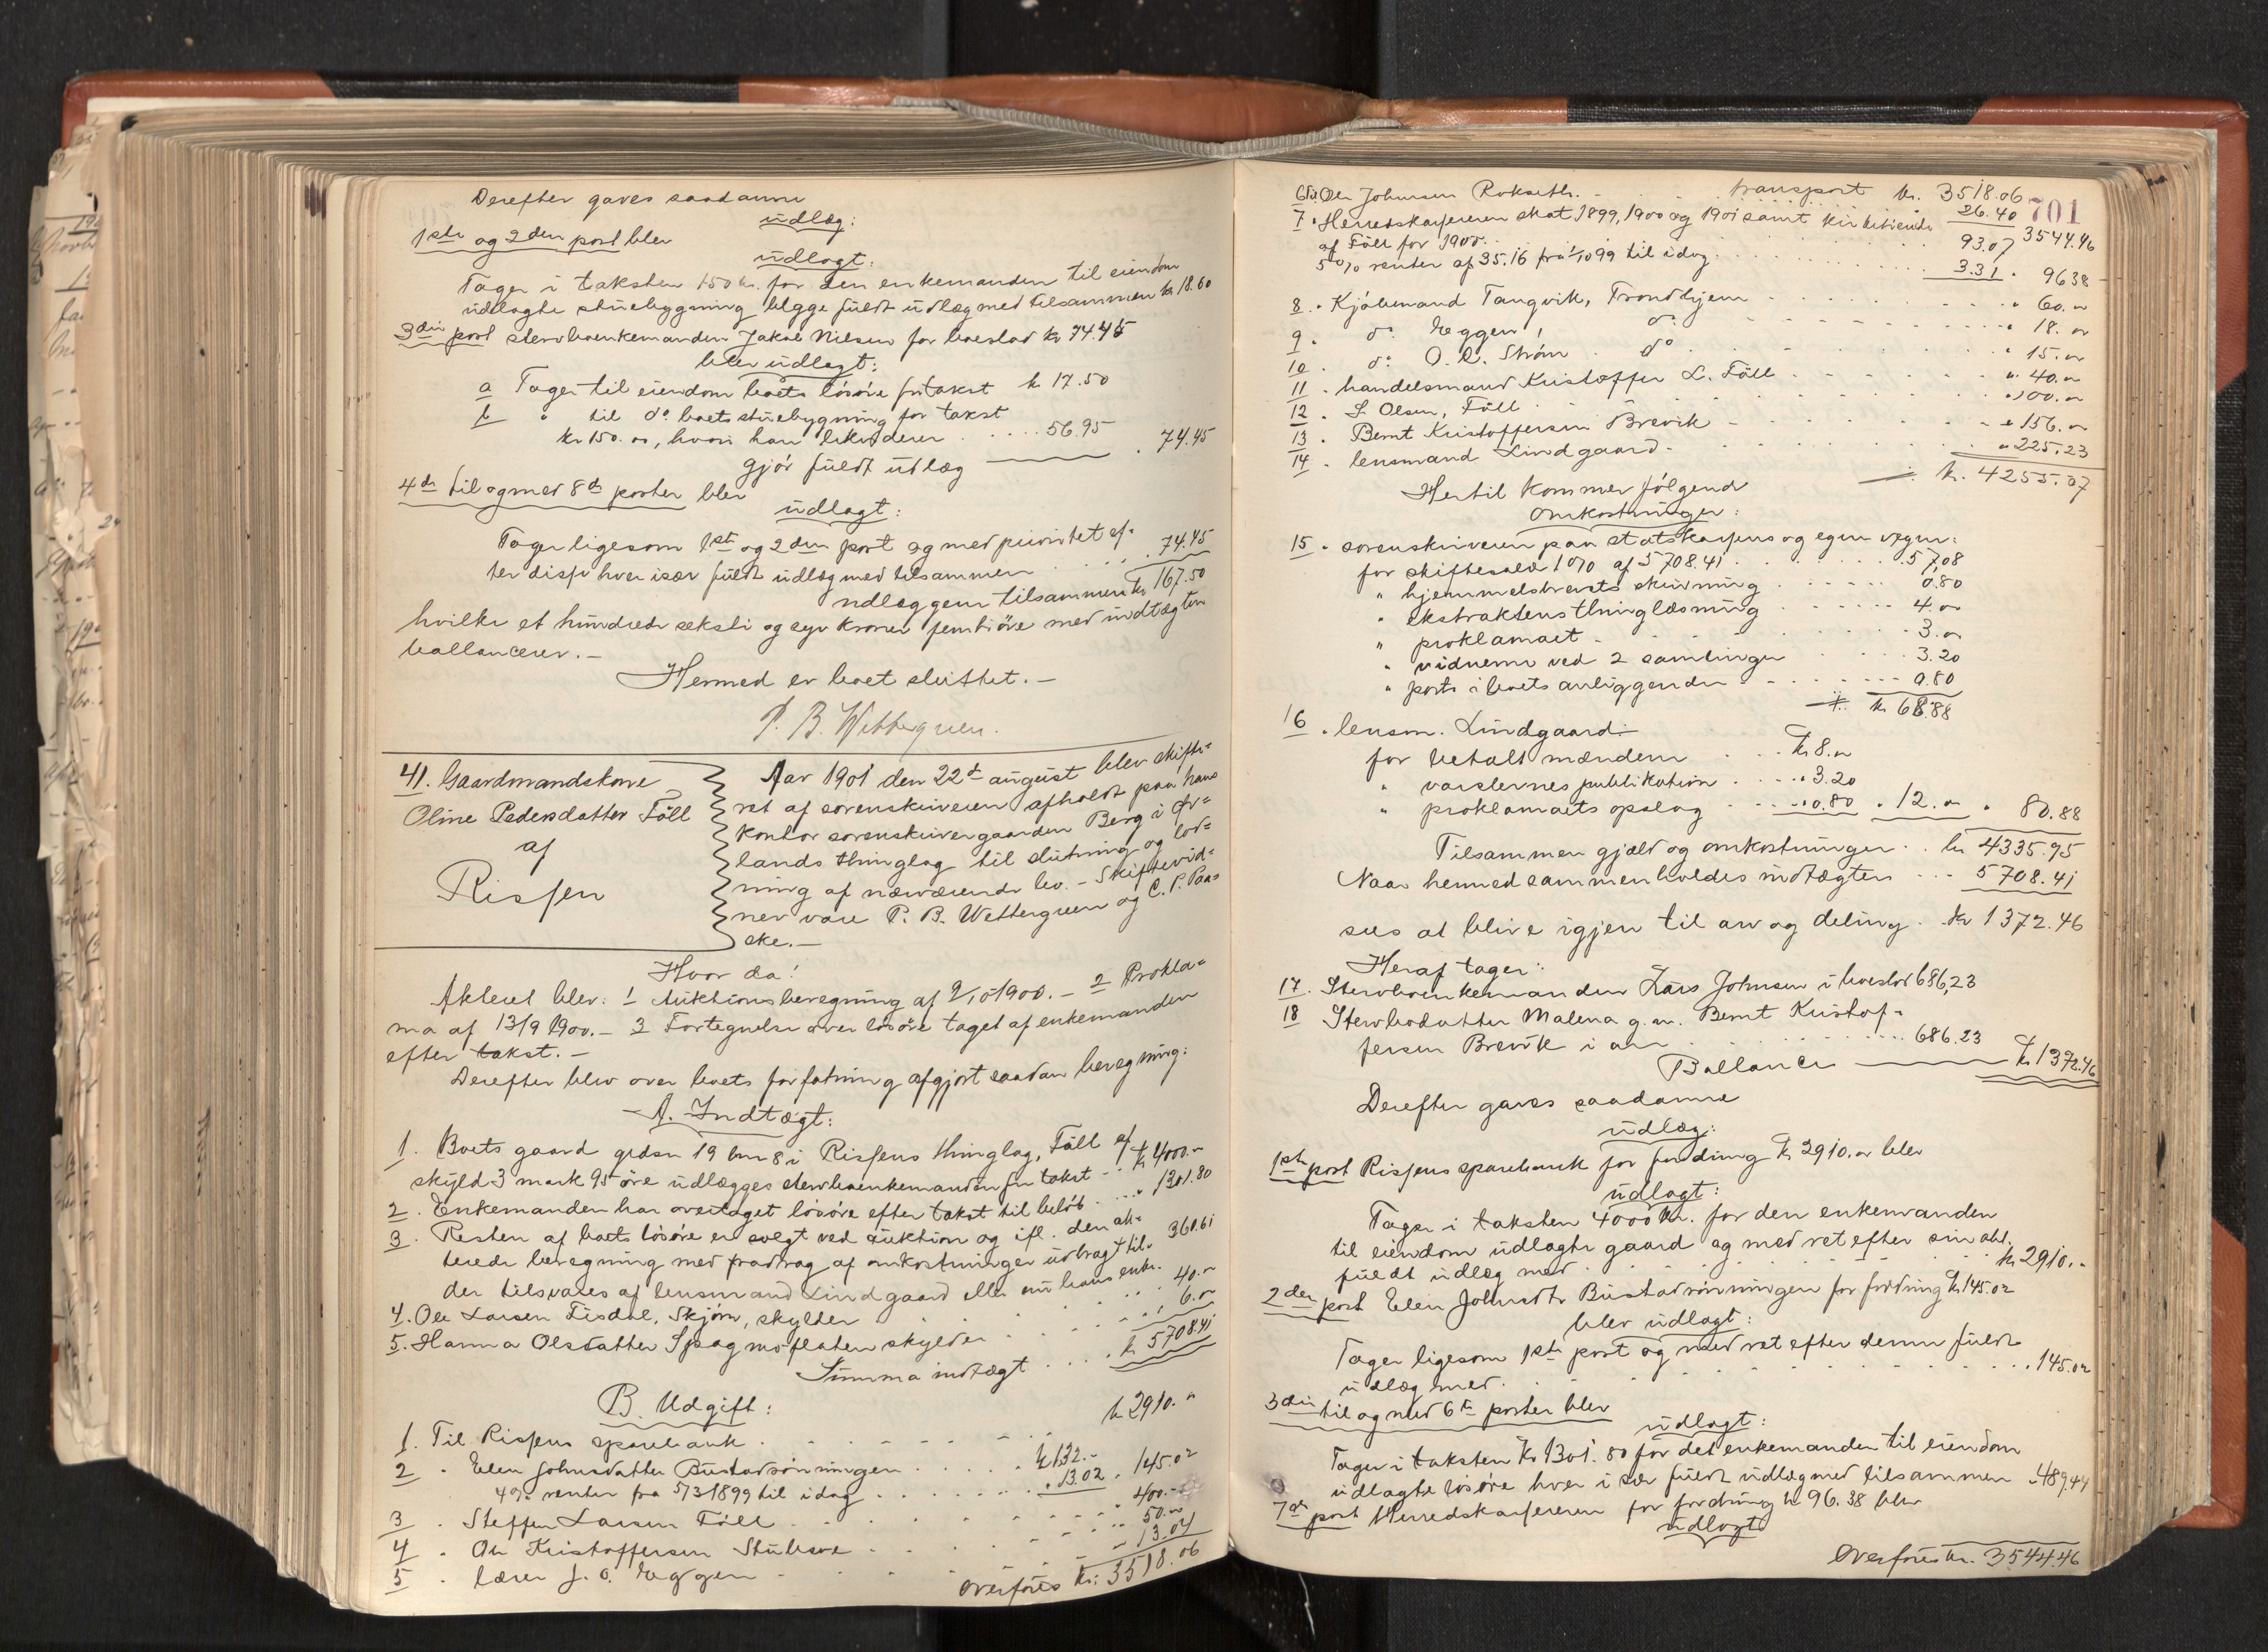 Derefter gaves saadanne
udlæg:
1ste og 2den post blev
udlagt:
Tager i taksten 150 kr. for den enkemanden til eiendom
udlagte stuebygning begge fuldt udlæg med tilsammen kr 18.60
3die post sterboenkemanden Jakob Nilsen for boeslod kr 74.45
blev udlagt:
a Tager til eiendom boets løsøre for takst kr 17.50
b " til do boets stuebygning for takst
kr 150.00, hvori han likviderer .... 56.95
gjør fuldt udlæg — . 74.45
4de til og med 8de poster blev
udlagt:
Tager ligesom 1ste og 2den post og med prioritet ef-
ter disse hver især fuldt udlæg med tilsammen . . . 74.45
udlæggene tilsammen kr 167.50
hvilke et hundrede seksti og syv kroner femti øre med indtægten
ballancerer. —
Hermed er boet sluttet. —
P. B. Wettergreen.
41. Gaardmandskone
Oline Pedersdatter Føll
af
Rissen
Aar 1901 den 22de august blev skifte-
ret af sorenskriveren afholdt paa hans
kontor sorenskrivergaarden Berg i Ør-
lands thinglag til slutning og lov-
ning af nærværende bo. — Skiftevid-
ner vare P. B. Wettergreen og C. P. Paas
ske. —
Hvor da!
Akteret blev: 1 Auktionsberegning af 9/10 1900. — 2 Prokla-
ma af 13/9 1900. — 3 Fortegnelse over løsøre taget af enkemanden
efter takst. —
Derefter blev over boets forfatning afgjort saadan beregning:
A. Indtægt:
1. Boets gaard grdsn 19 brn 8 i Rissens thinglag, Føll af
skyld 3 mark 95 øre udlægges sterboenkemanden for takst - - kr 4000.00
2. Enkemanden har overtaget løsøre efter takst til beløb . . . " 1301.80
3. Resten af boets løsøre er solgt ved auktion og ifl. den ak-
terede beregning med fradrag af omkostninger udbragt til " 360.61
der tilsvares af lensmand Lindgaard eller nu hans enke.
4. Ole Larsen Fisdal, Skjørn, skylder . . . 40.00
5. Hanna Olsdatter Spagmoflaten skylder . . . 6.00
Summa indtægt . . . . kr 5708.41
B. Udgift:
1. Til Rissens sparebank . . . kr 2910.00
2 " Elen Johnsdatter Bustadrønningen . . . kr 132.-
4% renter fra 5/3 1899 til idag . . . " 13.02 . 145.02
3 " Steffen Larsen Føll . . . 400.-
4 " Ole Kristoffersen . . . 50.00
5 " lærer J. O. Eggen . . . 13.04
overføres kr. 3518.06
701
transport kr. 3518.06
6 Til Ole Johnsen Rokseth . . . 26.40 3544.46
7 " Herredskassereren skat 1899, 1900 og 1901 samt kirketiende
af Føll for 1900 . . . 93.07
5% renter af 35.16 fra 1/10 99 til idag . . . 3.31 . 96.38
8 " Kjøbmand Tangvik, Trondhjem . . . " 60.00
9 " do Eggen, do . . . " 18.00
10 " do O. R. Strøm do . . . " 15.00
11 " handelsmand Kristoffer L. Føll . . . " 40.00
12 " S. Olsen, Føll . . . " 100.00
13 " Bernt Kristoffersen Brevik . . . " 156.00
14 " lensmand Lindgaard . . . " 225.23
kr. 4255.07
Hertil kommer følgende
omkostninger:
15 " sorenskriveren paa statskassens og egne vegne:
for skiftesalær 1% af 5708.41 . . . 57.08
" hjemmelsbrevets skrivning . . . 0.80
" ekstraktens thinglæsning . . . 4.00
" proklamaet . . . 3.00
" vidnerne ved 2 samlinger . . . 3.20
" porto i boets anliggender . . . 0.80
kr 68.88
16 " lensm. Lindgaard:
for betalt mændene . . . kr 8.00
" varslernes publikation . . . " 3.20
" proklamaets opslag . . . " 0.80 . 12.00 " 80.88
Tilsammen gjæld og omkostninger . . kr 4335.95
Naar hermed sammenholdes indtægten . . . 5708.41
sees at blive igjen til arv og deling . kr 1372.46
Heraf tager:
17. Sterboenkemanden Lars Johnsen i boeslod 686,23
18 Sterbodatter Malena g. m. Bernt Kristof-
fersen Brevik i arv . . . 686.23
Ballance — kr 1372.46
Derefter gaves saadanne
udlæg:
1ste post Rissens sparebank for fordring kr 2910.00 blev
udlagt:
Tager i taksten 4000 kr. for den enkemanden
til eiendom udlagte gaard og med ret efter sin obl.
fuldt udlæg med . . . kr. 2910.-
2den post Elen Johnsdtr Bustadrønningen for fordring kr 145.02
blev udlagt:
Tager ligesom 1ste post og med ret efter denne fuldt
udlæg med . . . 145.02
3die til og med 6te poster blev
udlagt:
Tager i taksten kr 1301.80 for det enkemanden til eiendom
udlagte løsøre hver især fuldt udlæg med tilsammen " 489.44
7de post Herredskassereren for fordring kr 96.38 blev
udlagt
Overføres kr. 3544.46